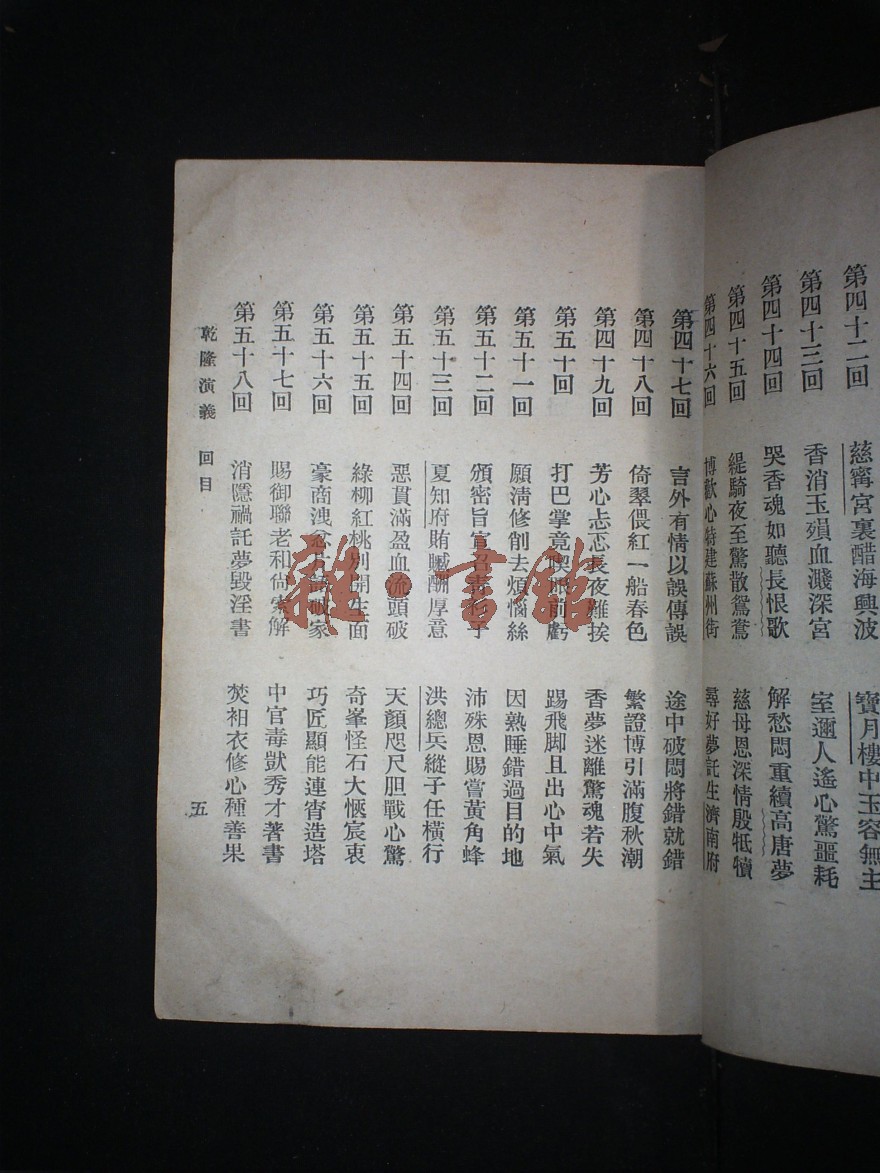 第四十二回 慈甯宮裏醋海興波 寶月樓中玉容無主
第四十三回 香消玉殞血濺深宮 室邇人遙心驚噩耗
第四十四回 哭香魂如聽長恨歌 解愁悶重續高唐夢
第四十五回 緹騎夜至驚散鴛鴦 慈母恩深情殷牴犢
第四十六回 博歡心特建蘇州街 尋好夢託生濟南府
第四十七回 言外有情以誤傳誤 途中破悶將錯就錯
第四十八回 倚翠偎紅一船春色 繁證博引滿腹秋潮
第四十九回 芳心忐忑長夜難挨 香夢迷離驚魂若失
第五十回 打巴掌竟喫眼前虧 踢飛脚且出心中氣
第五十一回 願清修削去煩惱絲 因熟睡錯過目的地
第五十二回 頒密旨官 子 沛殊恩賜嘗黃角蜂
第五十三回 夏知府賄贓酬厚意 洪總兵縱子任橫行
第五十四回 惡貫滿盈血流頭破 天顏咫尺胆戰心驚
第五十五回 綠柳紅桃別開生面 奇峯怪石大愜宸衷
第五十六回 豪商洩忿 破家 巧匠顯能連宵造塔
第五十七回 賜御聯老和尙 解 中官毒獃秀才著書
第五十八回 消隱禍託夢毀淫書 焚衵衣修心種善果
乾隆演義 回目
五
雜·書館